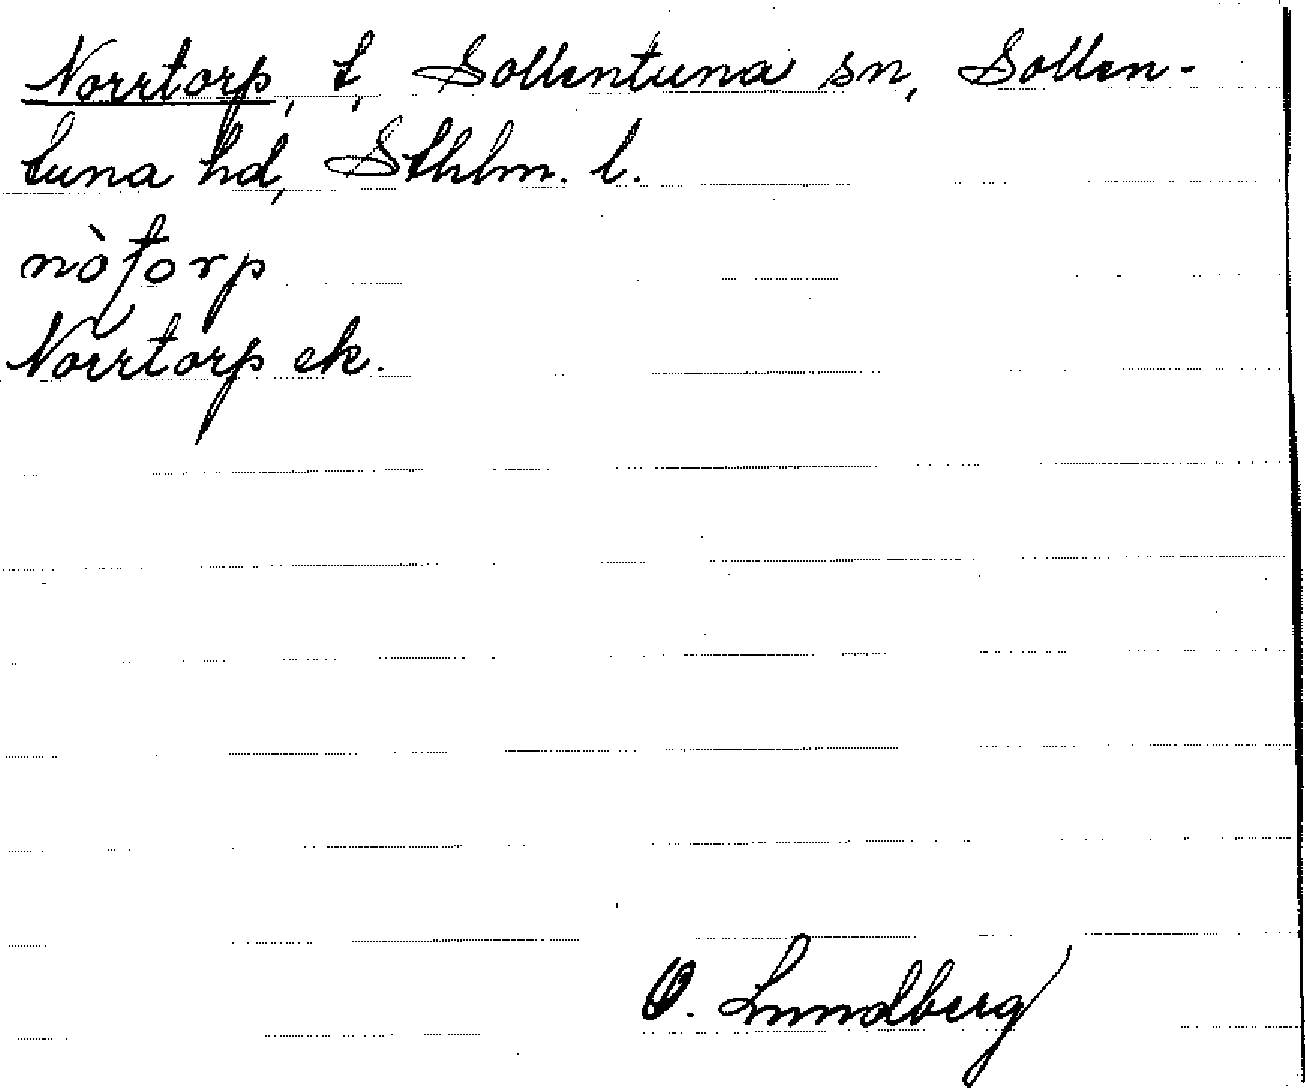 Norrtorp, t, Sollentuna sn, Sollen-
tuna hd, Sthlm. l.
nòtorp
Norrtorp ek.
O. Lundberg